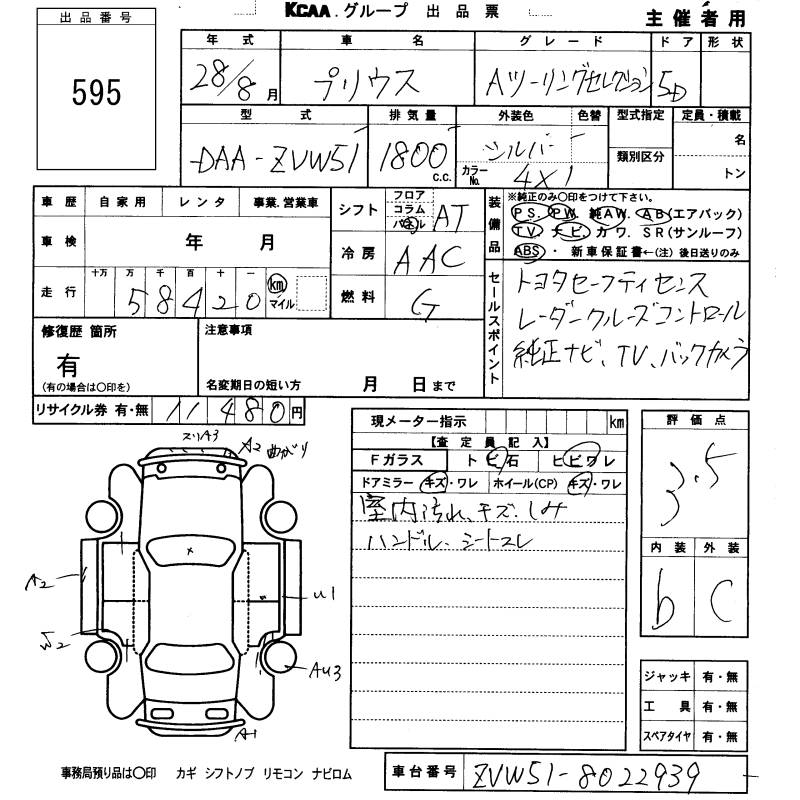 KCAA.グループ 出品票
主催者用
出品番号
595
年式 車名 グレード ドア 形状
28/8月 プリウス Aツーリングセレクション 5D
型式 排気量 外装色 色替 型式指定 定員・積載
DAA-ZVW51 1800 c.c. シルバー 名
類別区分
カラーNo. 4X1 トン
車歴 自家用 レンタ 事業.営業車
車検 年 月
走行 十万 万 千 百 十 一
58420 km マイル
シフト フロア コラム パネル AT
冷房 AAC
燃料 G
装備品
※純正のみ〇印をつけて下さい。
PS. PW. 純AW. AB(エアバック)
TV. ナビ. カワ. SR(サンルーフ)
ABS ・ 新車保証書←(注)後日送りのみ
セールスポイント
トヨタセーフティセンス
レーダークルーズコントロール
純正ナビ、TV、バックカメラ
修復歴 箇所
有
(有の場合は〇印を)
注意事項
名変期日の短い方 月 日まで
リサイクル券 有・無 11480円
現メーター指示 km
【査定員記入】
Fガラス トビ石 ヒビワレ
ドアミラー キズ・ワレ ホイール(CP) キズ・ワレ
室内汚れ、キズ、しみ
ハンドル、シートスレ
評価点
3.5
内装 外装
b C
スリA3
A2 曲がり
A2
U1
W2
AU3
A1
ジャッキ 有・無
工具 有・無
スペアタイヤ 有・無
事務局預り品は〇印 カギ シフトノブ リモコン ナビロム
車台番号 ZVW51-8022939